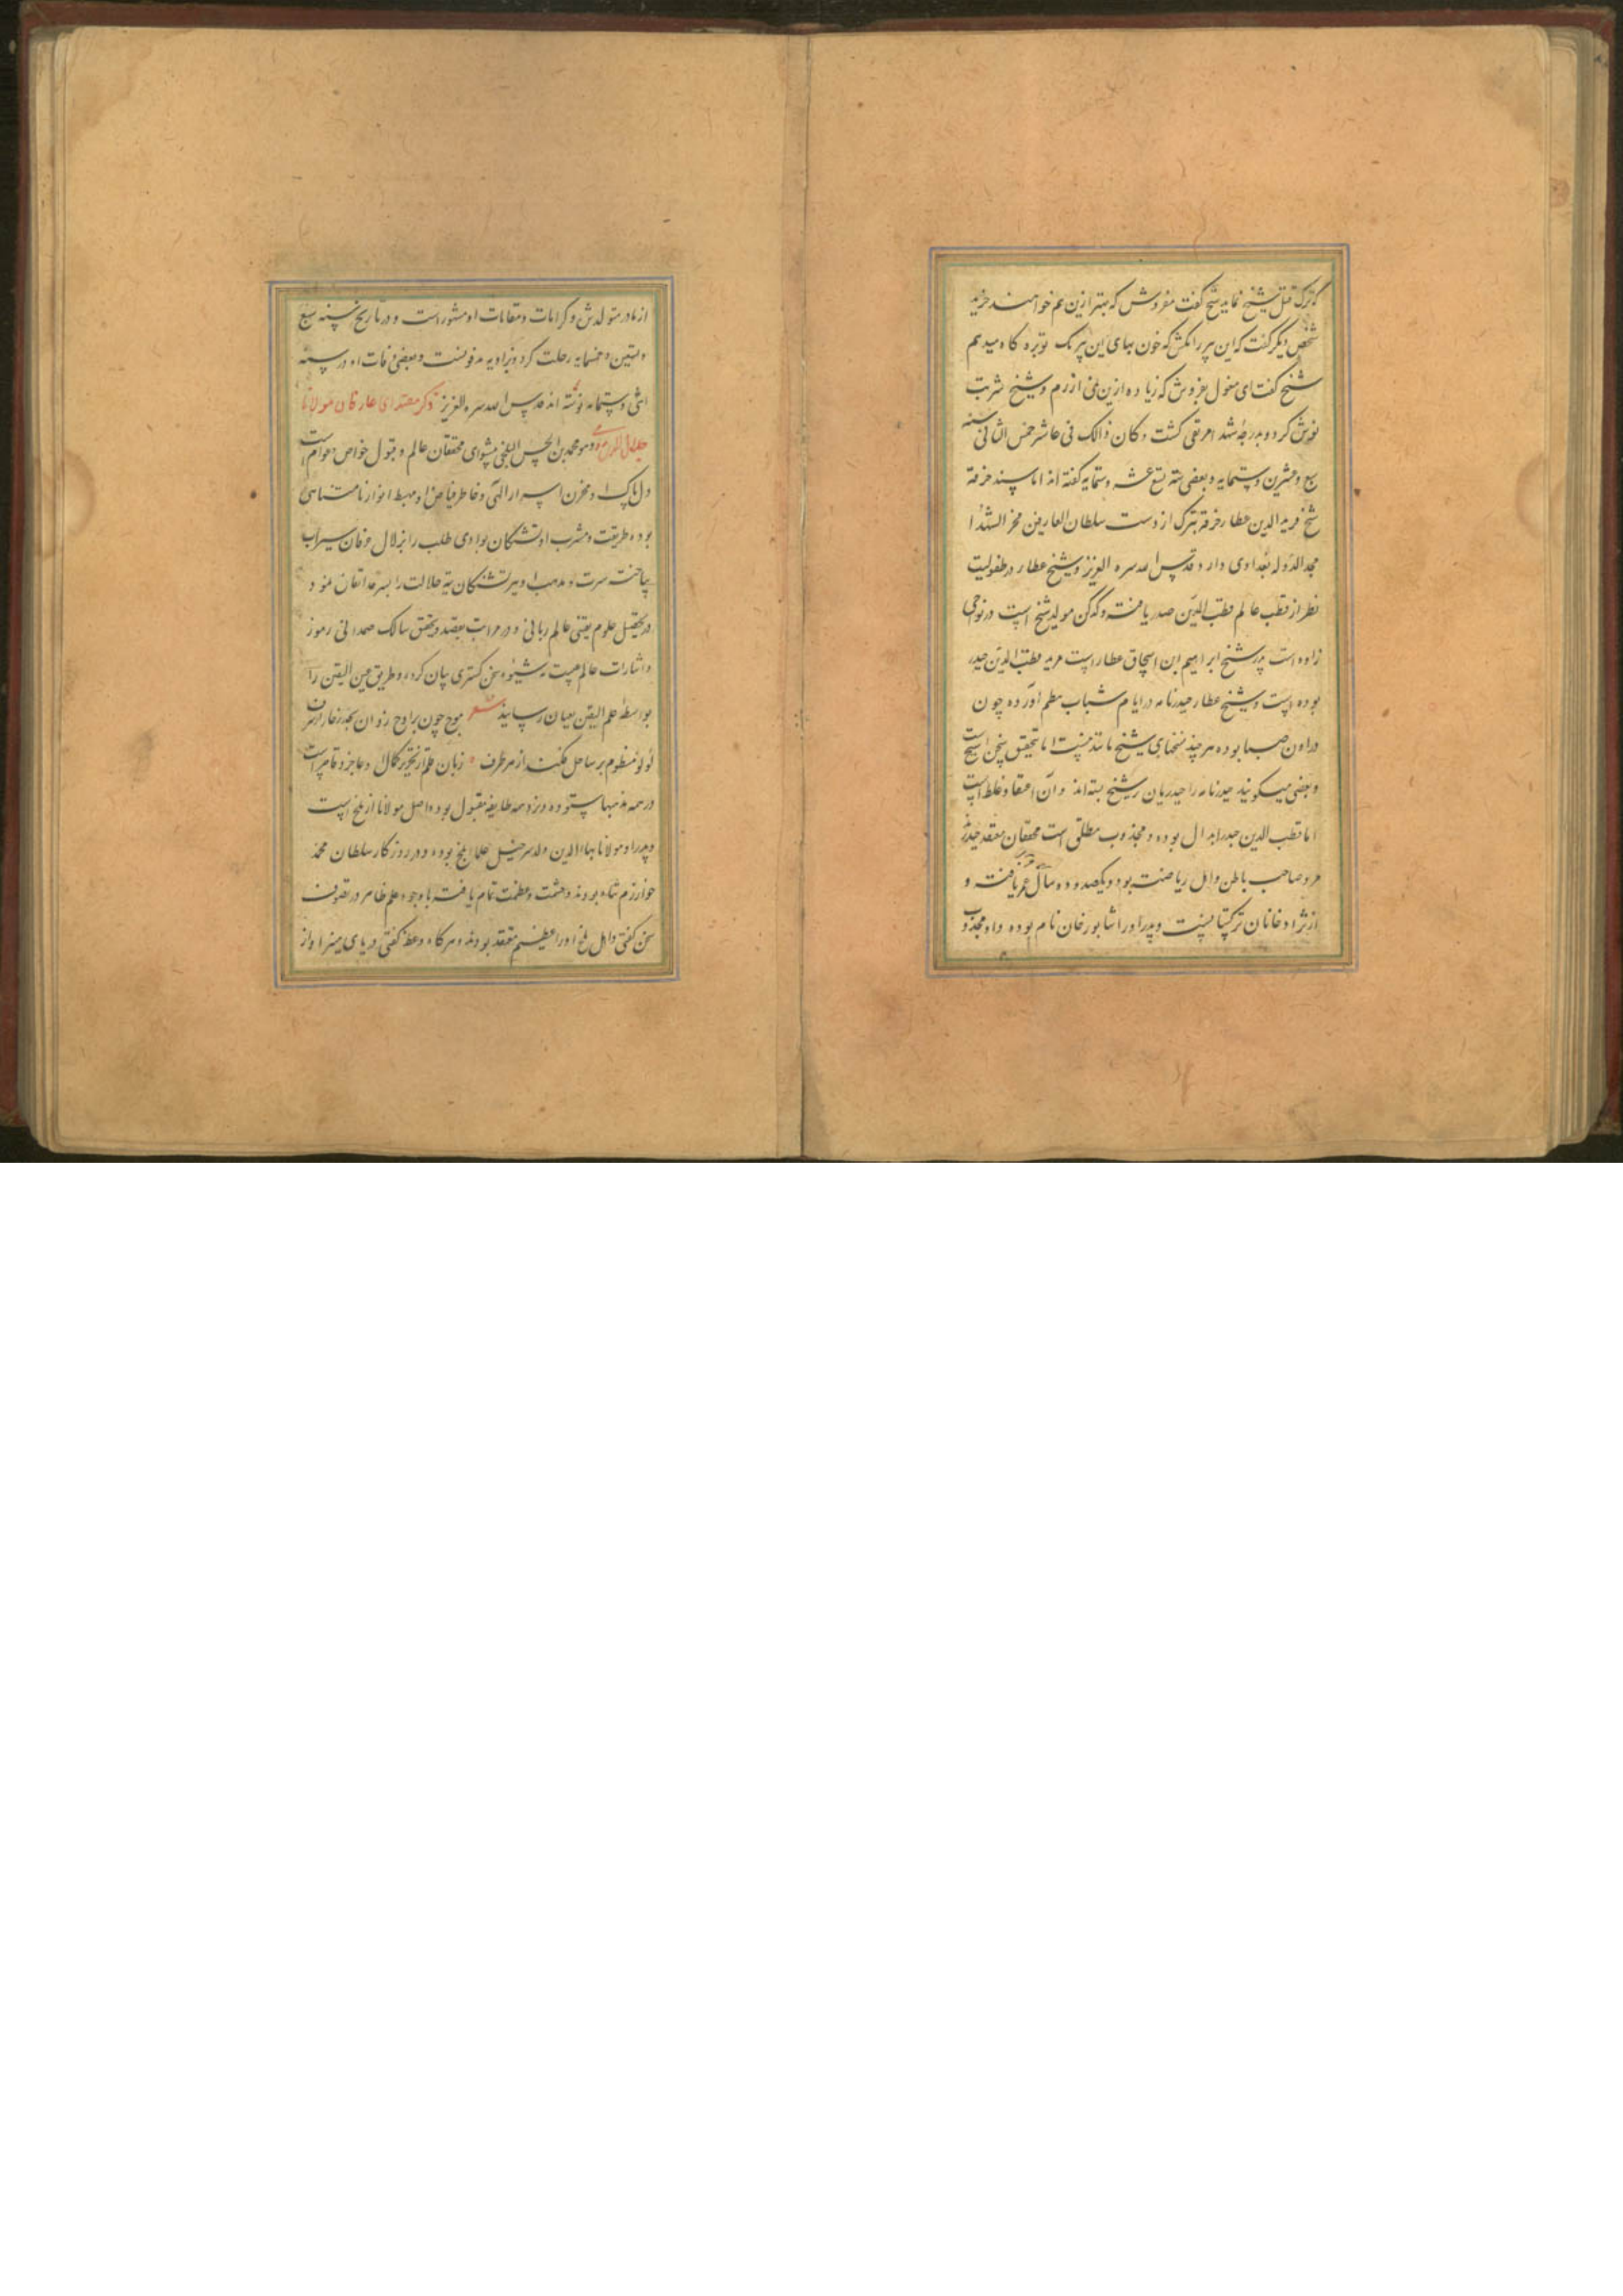 که ترک قتل شیخ نماید شیخ گفت مفروش که بهتر ازین هم خواهند خرید
شخص دیگر گفت که این پیر را مکش که خون بهای این پیر یک توبره کاه میدهم
شیخ گفت ای مغول بفروش که زیاده ازین نمی ارزم و شیخ شربت
نوش کرد و بدرجه شهدا مرتقی گشت و کان ذالک فی عاشر جمی الثانی سنه
سبع و عشرین و ستمایه و بعضی سنه تسع عشر و ستمایه گفته اند اما سند خرقه
شیخ فرید الدین عطار خرقه تبرک از دست سلطان العارفین فخر الشهدا
مجد الدوله بغدادی دارد قدس الله سره العزیز و شیخ عطار در طفولیت
نظر از قطب عالم قطب الدین حیدر یافته و کدکن مولد شیخ است در نواحی
زاوه است پدر شیخ ابراهیم بن اسحاق عطار است مرید قطب الدین حیدر
بوده است و شیخ عطار حیدرنامه در ایام شباب نظم آورده چون
در اوان صبا بوده هر چند بسخنهای شیخ مانند نیست اما تحقیق سخن شیخ است
و بعضی میگویند حیدرنامه را حیدریان بر شیخ بسته اند و آن اعتقاد غلط است
اما قطب الدین حیدر ابدال بوده و مجذوب مطلق است محققان معتقد حیدرند
مرد صاحب باطن و اهل ریاضت بود و یکصد و ده سال عمر یافت و
از نژاد خانان ترکستانست و پدر او را شاهور خان نام بوده و او مجذوب
از مادر متولد شد و کرامات و مقامات او مشهور است و در تاریخ سنه سبع
و تسعین و خمسمایه رحلت کرد و بزاویه مدفونست و بعضی وفات او در سنه
اثنی و ستمایه نوشته اند قدس الله سره العزیز ذکر مقتدای عارفان مولانا
جلال الدین رومی و هو محمد بن الحسین البلخی پیشوای محققان عالم و قبول خواص و عوام است
دل پاک او مخزن اسرار الهی و خاطر فیاض او مهبط انوار نامتناهی
بوده طریقت و مشرب او تشنگان بوادی طلب را بزلال عرفان سیراب
ساخته سیرت و مذهب او سرگشتگان تیه ضلالت را بسرحد اتقان نمود
در تحصیل علوم یقینی عالم ربانی و در مراتب توحید و تحقق سالک صمدانی رموز
و اشارات عالم غیب بشیوه سخن گستری بیان کرده و طریق عین الیقین را
بواسطه علم الیقین بعیان رسانید شعر موج چون بر اوج زد آن بحر زخار از شرف
لولو منظوم بر ساحل فکند از هر طرف زبان قلم از تحریر کمال او عاجز و قاصر است
در همه مذهبها ستوده و نزد همه طایفه مقبول بوده اصل مولانا از بلخ است
و پدر او مولانا بهاء الدین ولد سرخیل علماء بلخ بوده و در روزگار سلطان محمد
خوارزم شاه بودند و حشمت و عظمت تمام یافته با وجود علم ظاهر در تصوف
سخن گفتی و اهل بلخ او را عظیم معتقد بودند و هرگاه وعظ گفتی در پای منبر او از